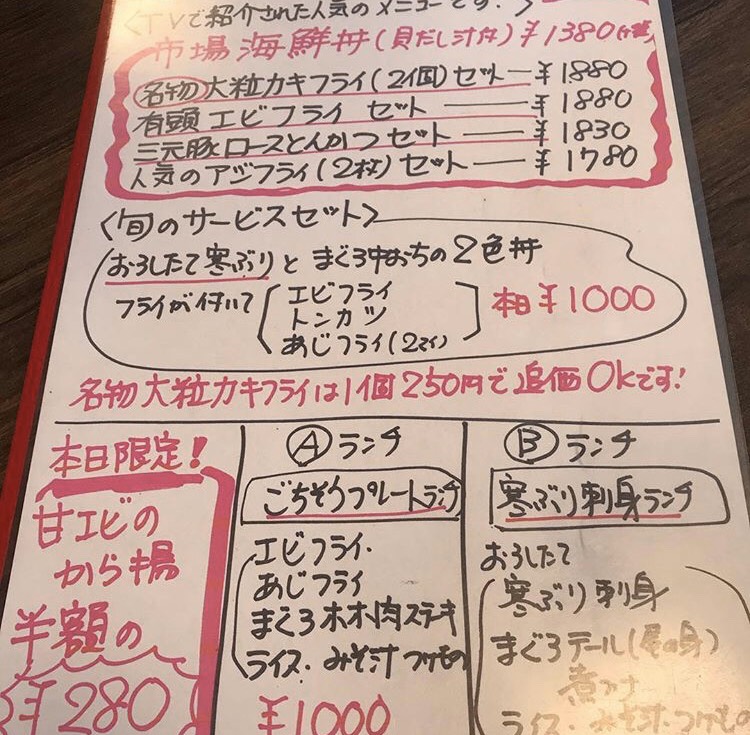 <TVで紹介された人気のメニューです!>
市場海鮮丼(貝だし汁付) ¥1380
名物大粒カキフライ(2個)セット ― ¥1880
有頭エビフライ セット ― ¥1880
三元豚ロースとんかつセット ― ¥1830
人気のアジフライ(2枚)セット ― ¥1780
<旬のサービスセット>
おろしたて寒ぶりとまぐろ中おちの2色丼
フライが付いて
エビフライ
トンカツ
あじフライ(2マイ)
本日¥1000
名物大粒カキフライは1個250円で追価OKです!
本日限定!
甘エビの
から揚
半額の
¥280
Aランチ
ごちそうプレートランチ
エビフライ・
あじフライ
まぐろホホ肉ステーキ
ライス・みそ汁つけもの
¥1000
Bランチ
寒ぶり刺身ランチ
おろしたて
寒ぶり刺身
まぐろテール(尾の身)
煮つけ
ライス・みそ汁・つけもの